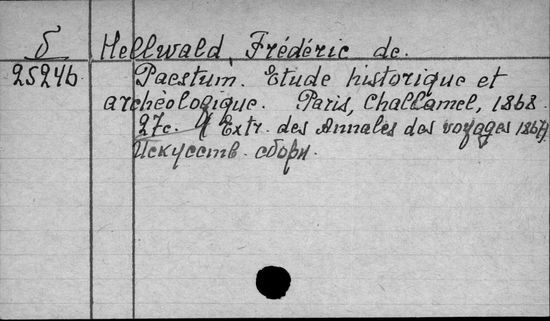 б Hellwald, Frédéric de.
2524b Paestum. Etude historique et
archéologique. Paris, Challamel, 1868.
27c. (Extr. des Annales des voyages 1867)
Искусств. сборн.